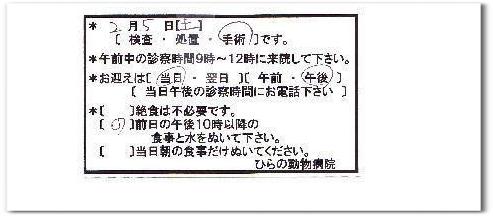 * 2月5日[土]
[ 検査 ・ 処置 ・ 手術 ]です。
*午前中の診察時間9時～12時に来院して下さい。
*お迎えは[ 当日 ・ 翌日 ][ 午前 ・ 午後 ]
[ 当日午後の診察時間にお電話下さい ]
*[ ]絶食は不必要です。
[ ○ ]前日の午後10時以降の
食事と水をぬいて下さい。
[ ]当日朝の食事だけぬいてください。
ひらの動物病院